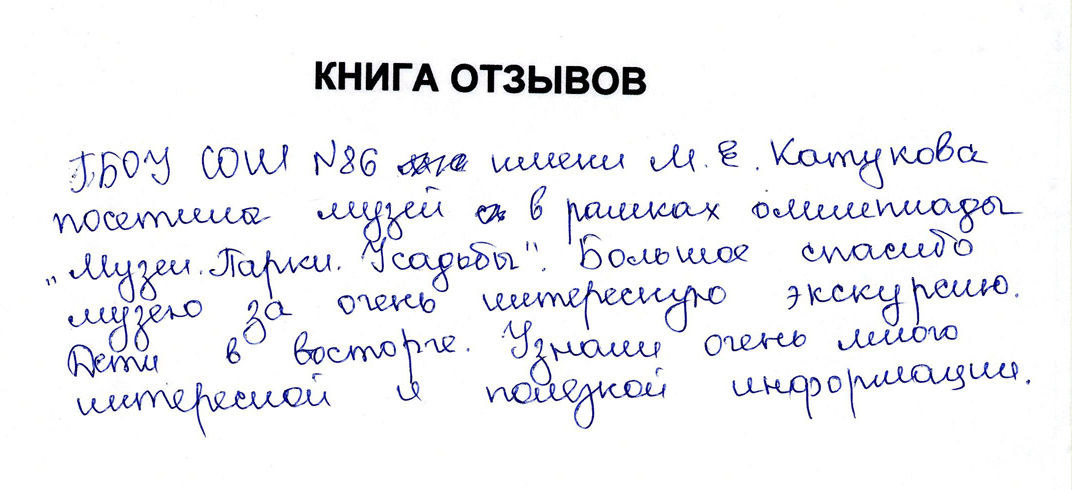 КНИГА ОТЗЫВОВ
ГБОУ СОШ №86 имени М.Е. Катукова
посетила музей в рамках олимпиады
„Музеи. Парки. Усадьбы". Большое спасибо
музею за очень интересную экскурсию.
Дети в восторге. Узнали очень много
интересной и полезной информации.